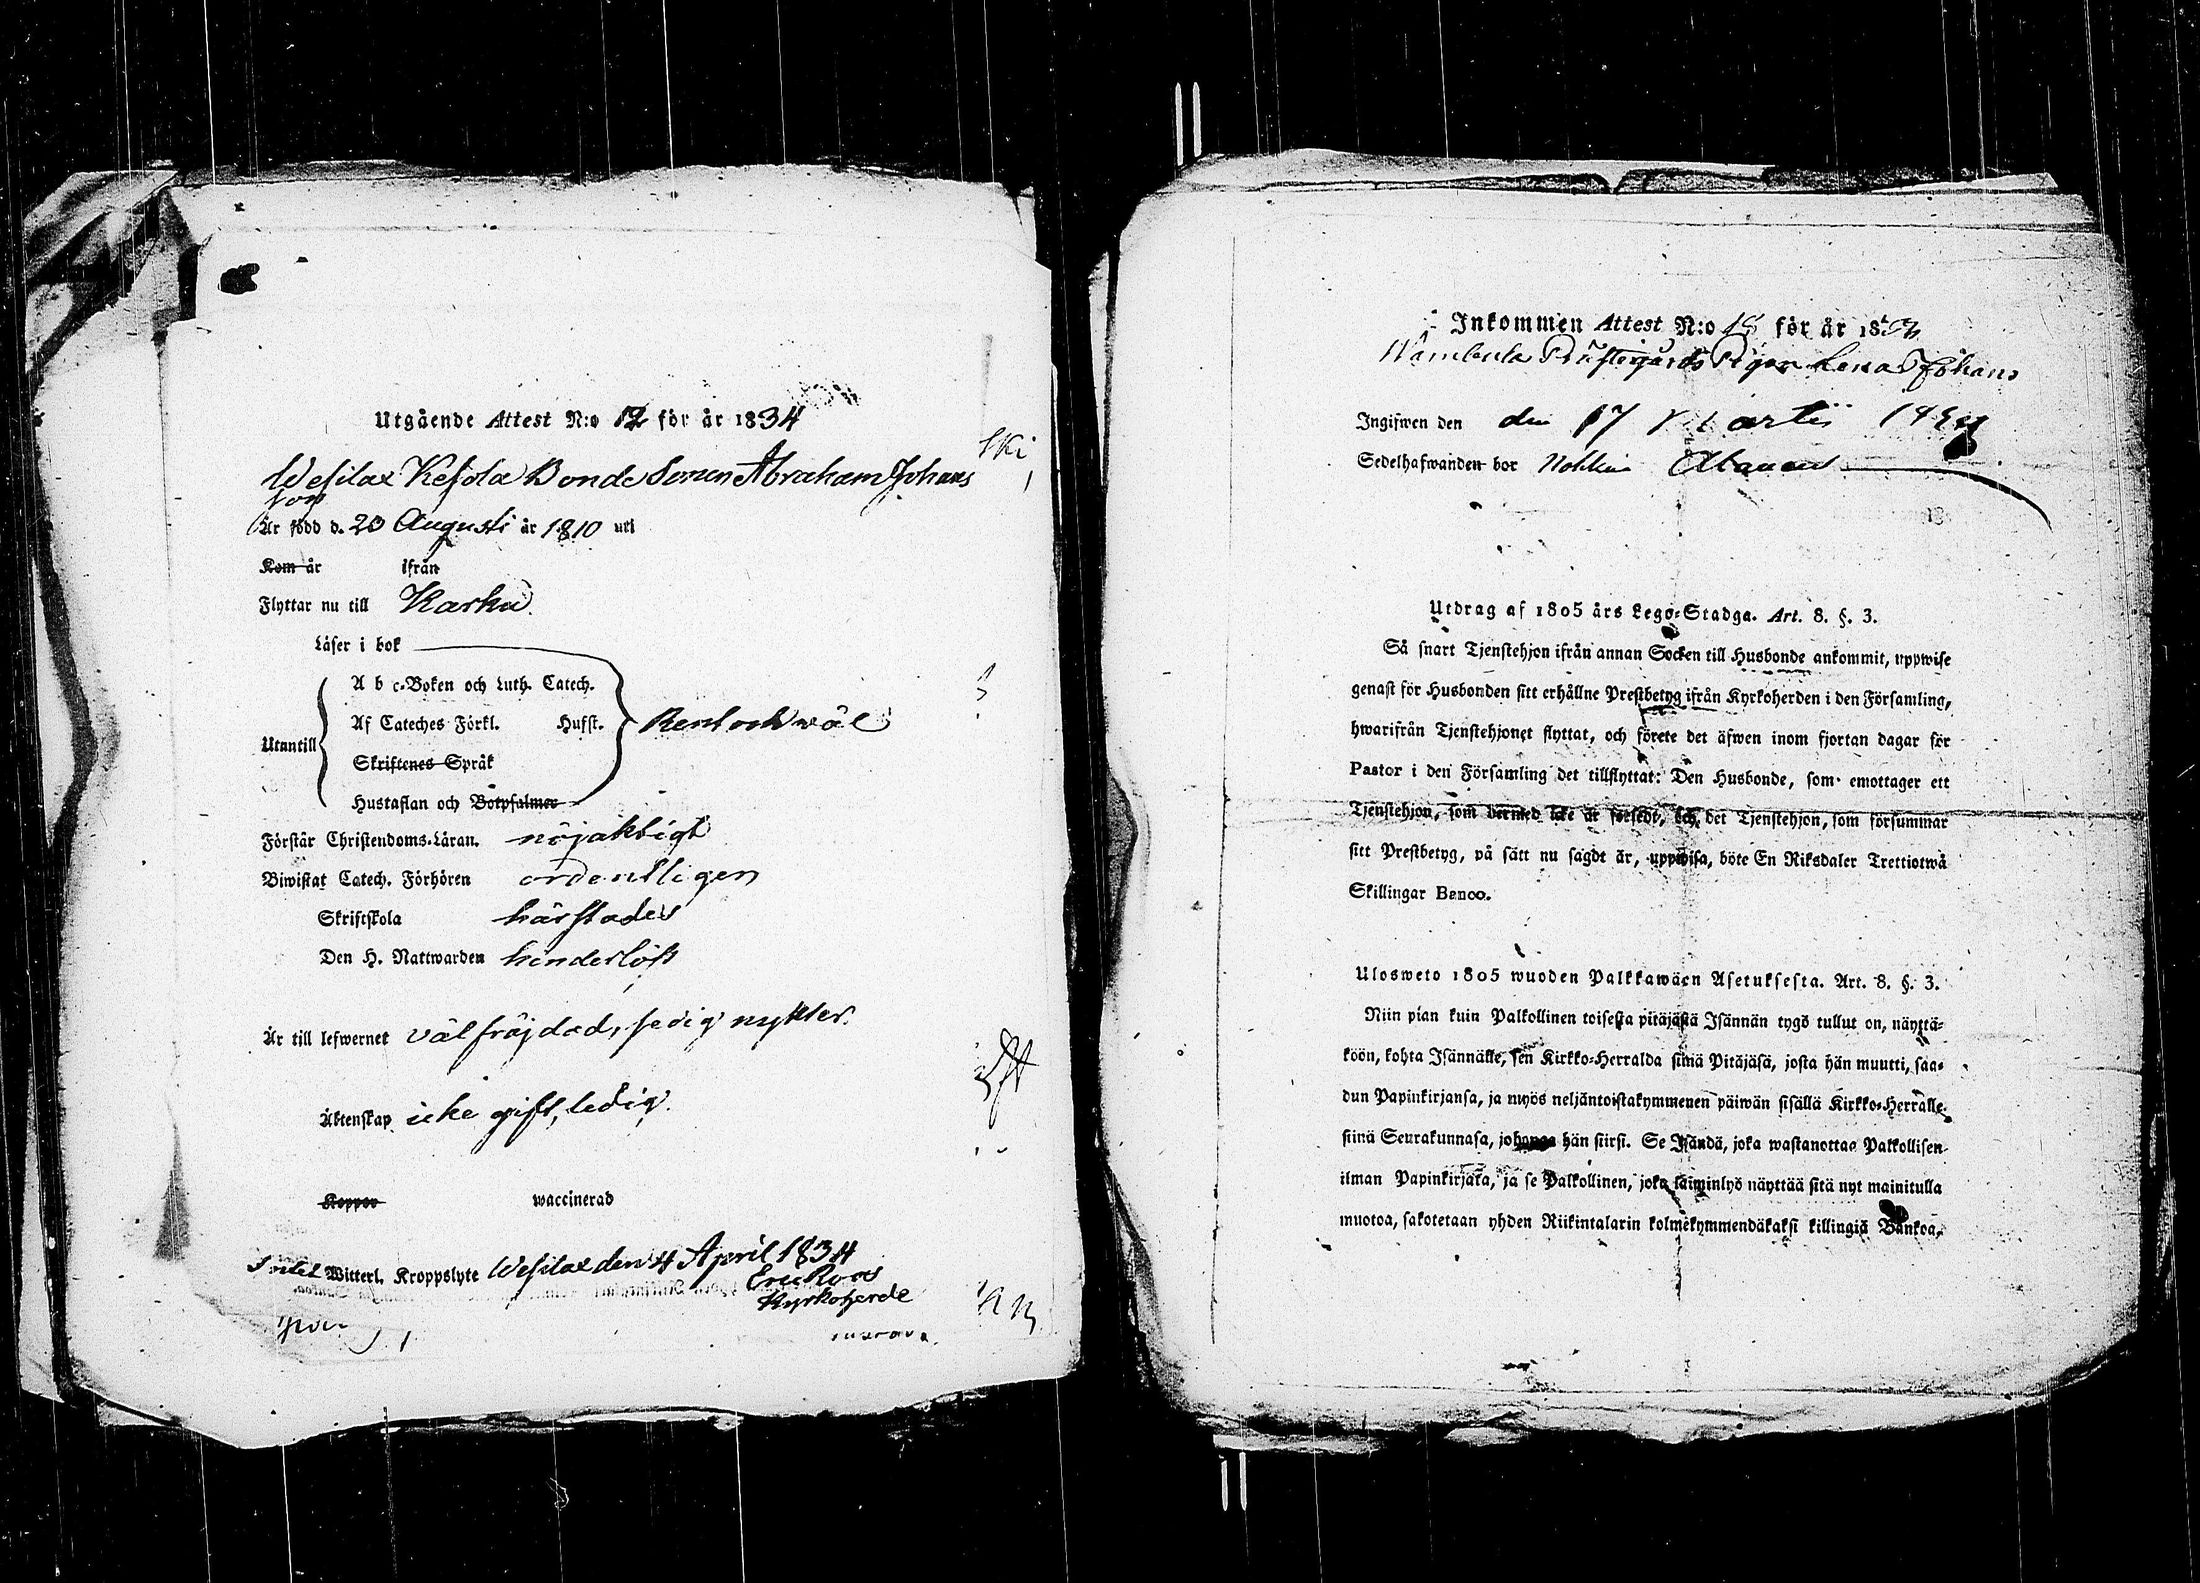 Utgående Attest N:o 12 för år 1834
Wesilax Kesola Bonde Sonen Abraham Johans
son
Är född d. 20 Augusti år 1810 uti
Kom år ifrån
Flyttar nu till Karku
Läser i bok
A b c-Boken och Luth. Catech.
Af Cateches Förkl. Hufst. Rent och wäl
Utantill
Skriftenes Språk
Hustaflan och Botpsalmer
Förstår Christendoms-Läran. nöjaktigt
Biwistat Catech. Förhören ordentligen
Skriftskola härstades
Den H. Nattwarden hinderlöst
Är till lefwernet välfräjdad, sedig nykter.
Äktenskap icke gift, ledig.
Koppor waccinerad
Intet Witterl. Kroppslyte Wesilax den 4 April 1834
Eric Roos
Kyrkoherde
Inkommen Attest N:o 18 för år 18
Prästegårds Pigan Lena Johans
Ingifwen den den 17 Martii
Sedelhafwanden bor
Utdrag af 1805 års Lego-Stadga. Art. 8. §. 3.
Så snart Tjenstehjon ifrån annan Socken till Husbonde ankommit, uppwise
genast för Husbonden sitt erhållne Prestbetyg ifrån Kyrkoherden i den Församling,
hwarifrån Tjenstehjonet flyttat, och förete det äfwen inom fjortan dagar för
Pastor i den Församling det tillflyttat: Den Husbonde, som emottager ett
Tjenstehjon, som dermed icke är försedt, och det Tjenstehjon, som försummar
sitt Prestbetyg, på sätt nu sagdt är, uppwisa, böte En Riksdaler Trettiotwå
Skillingar Banco.
Ulosweto 1805 wuoden Palkkawäen Asetuksesta. Art. 8. §. 3.
Niin pian kuin Palkollinen toisesta pitäjästä Isännän tygö tullut on, näyttä-
köön, kohta Isännälle, sen Kirkko-Herralda siinä Pitäjäsä, josta hän muutti, saa-
dun Papinkirjansa, ja myös neljäntoistakymmenen päiwän sisällä Kirkko-Herralle
siinä Seurakunnasa, johonga hän siirsi. Se Isändä, joka wastanottaa Palkollisen
ilman Papinkirjata, ja se Palkollinen, joka laiminlyö näyttää sitä nyt mainitulla
muotoa, sakotetaan yhden Riikintalarin kolmekymmendäkaksi killingiä Bankoa.